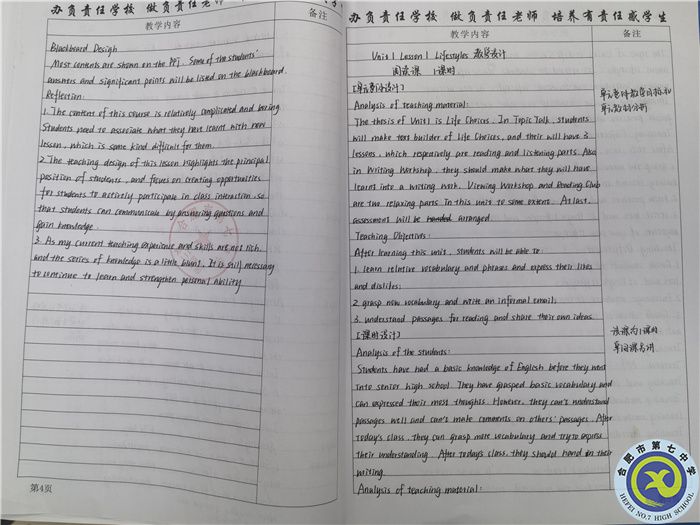 办负责任学校 做负责任老师
教学内容
备注
Blackboard Design
Most contents are shown on the PPT. Some of the students'
answers and significant points will be listed on the blackboard.
Reflection:
1. The content of this course is relatively complicated and boring.
Students need to associate what they have learnt with new
lesson, which is some kind difficult for them.
2. The teaching design of this lesson highlights the principal
position of students, and focus on creating opportunities
for students to actively participate in class interaction, so
that students can communicate by answering questions and
gain knowledge.
3. As my current teaching experience and skills are not rich,
and the series of knowledge is a little blunt. It is still necessary
to continue to learn and strengthen personal ability
第4页
办负责任学校 做负责任老师 培养有责任感学生
教学内容
备注
Unit 1 Lesson 1 Lifestyles 教学设计
阅读课 1课时
[单元整体设计]
Analysis of teaching material:
The thesis of Unit 1 is Life Choices. In Topic Talk, students
will make text builder of Life Choices, and their will have 3
lessons, which respectively are reading and listening parts. Also
in Writing Workshop, they should make what they will have
learnt into a writing work. Viewing Workshop and Reading Club
are two relaxing parts in this unit to some extent. At last,
assessment will be arranged.
Teaching Objectives:
After learning this unit, students will be able to:
1. learn relative vocabulary and phrases and express their likes
and dislikes;
2. grasp new vocabulary and write an informal email;
3. understand passages for reading and share their own ideas.
[课时设计]
Analysis of the students:
Students have had a basic knowledge of English before they went
into senior high school. They have grasped basic vocabulary and
can expressed their most thoughts. However, they can't understand
passages well and can't make comments on others' passages. After
today's class, they can grasp more vocabulary and try to express
their understanding. After today's class, they should hand in their
writing.
Analysis of teaching material:
单元整体教学目标和
单元教材分析
该课为1课时
单词课另讲
合肥市第七中学
HEFEI NO.7 HIGH SCHOOL